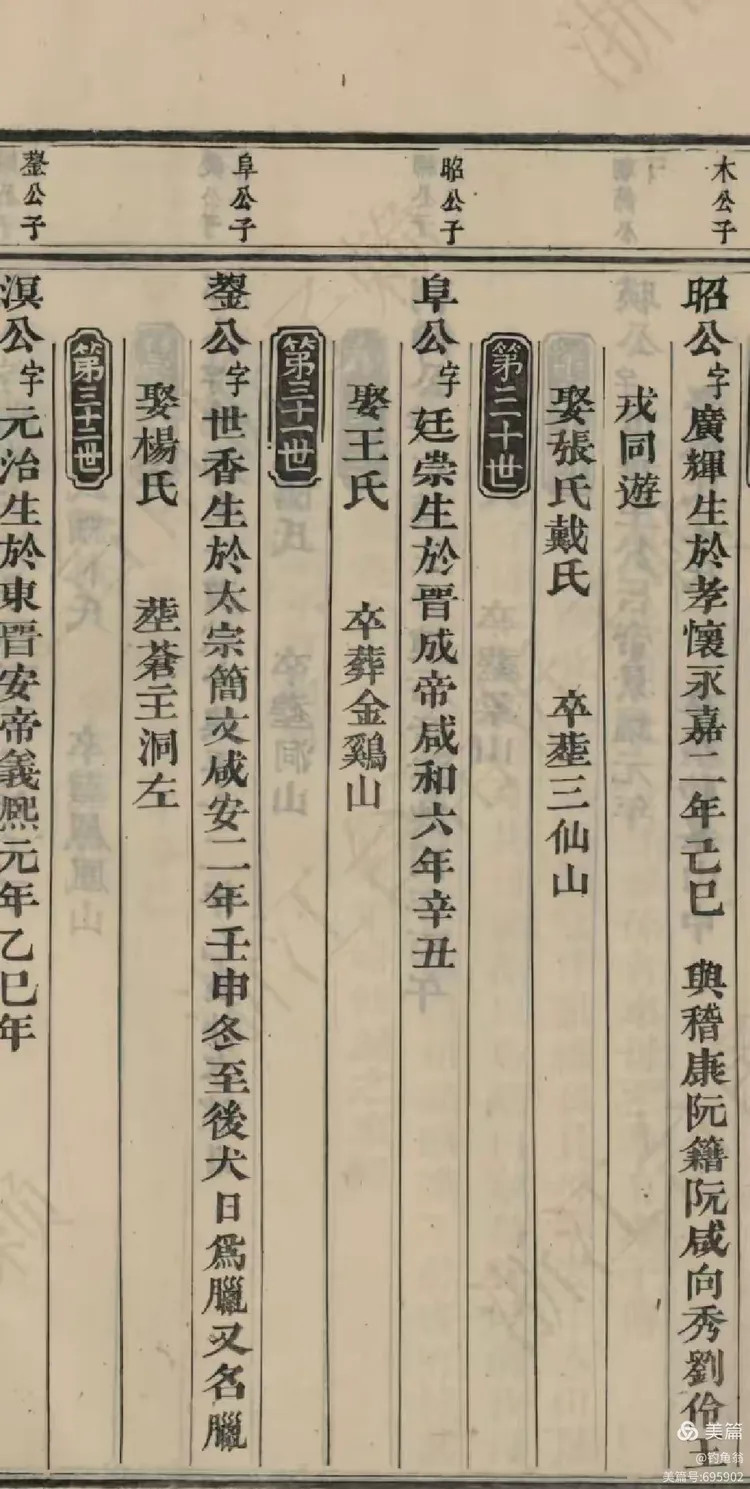 木公子
昭公字廣輝生於孝懷永嘉二年己巳 與稽康阮籍阮咸向秀劉伶王
戎同遊
娶張氏戴氏 卒塟三仙山
第二十世
昭公子
阜公字廷崇生於晉成帝咸和六年辛丑
娶王氏 卒葬金鷄山
第三十一世
阜公子
鎣公字世香生於太宗簡文咸安二年壬申冬至後犬日爲臘又名臘
娶楊氏 塟蒼主洞左
第三十二世
鎣公子
溟公字元治生於東晉安帝義熙元年乙巳年
美篇
@钓鱼翁
美篇号:695902